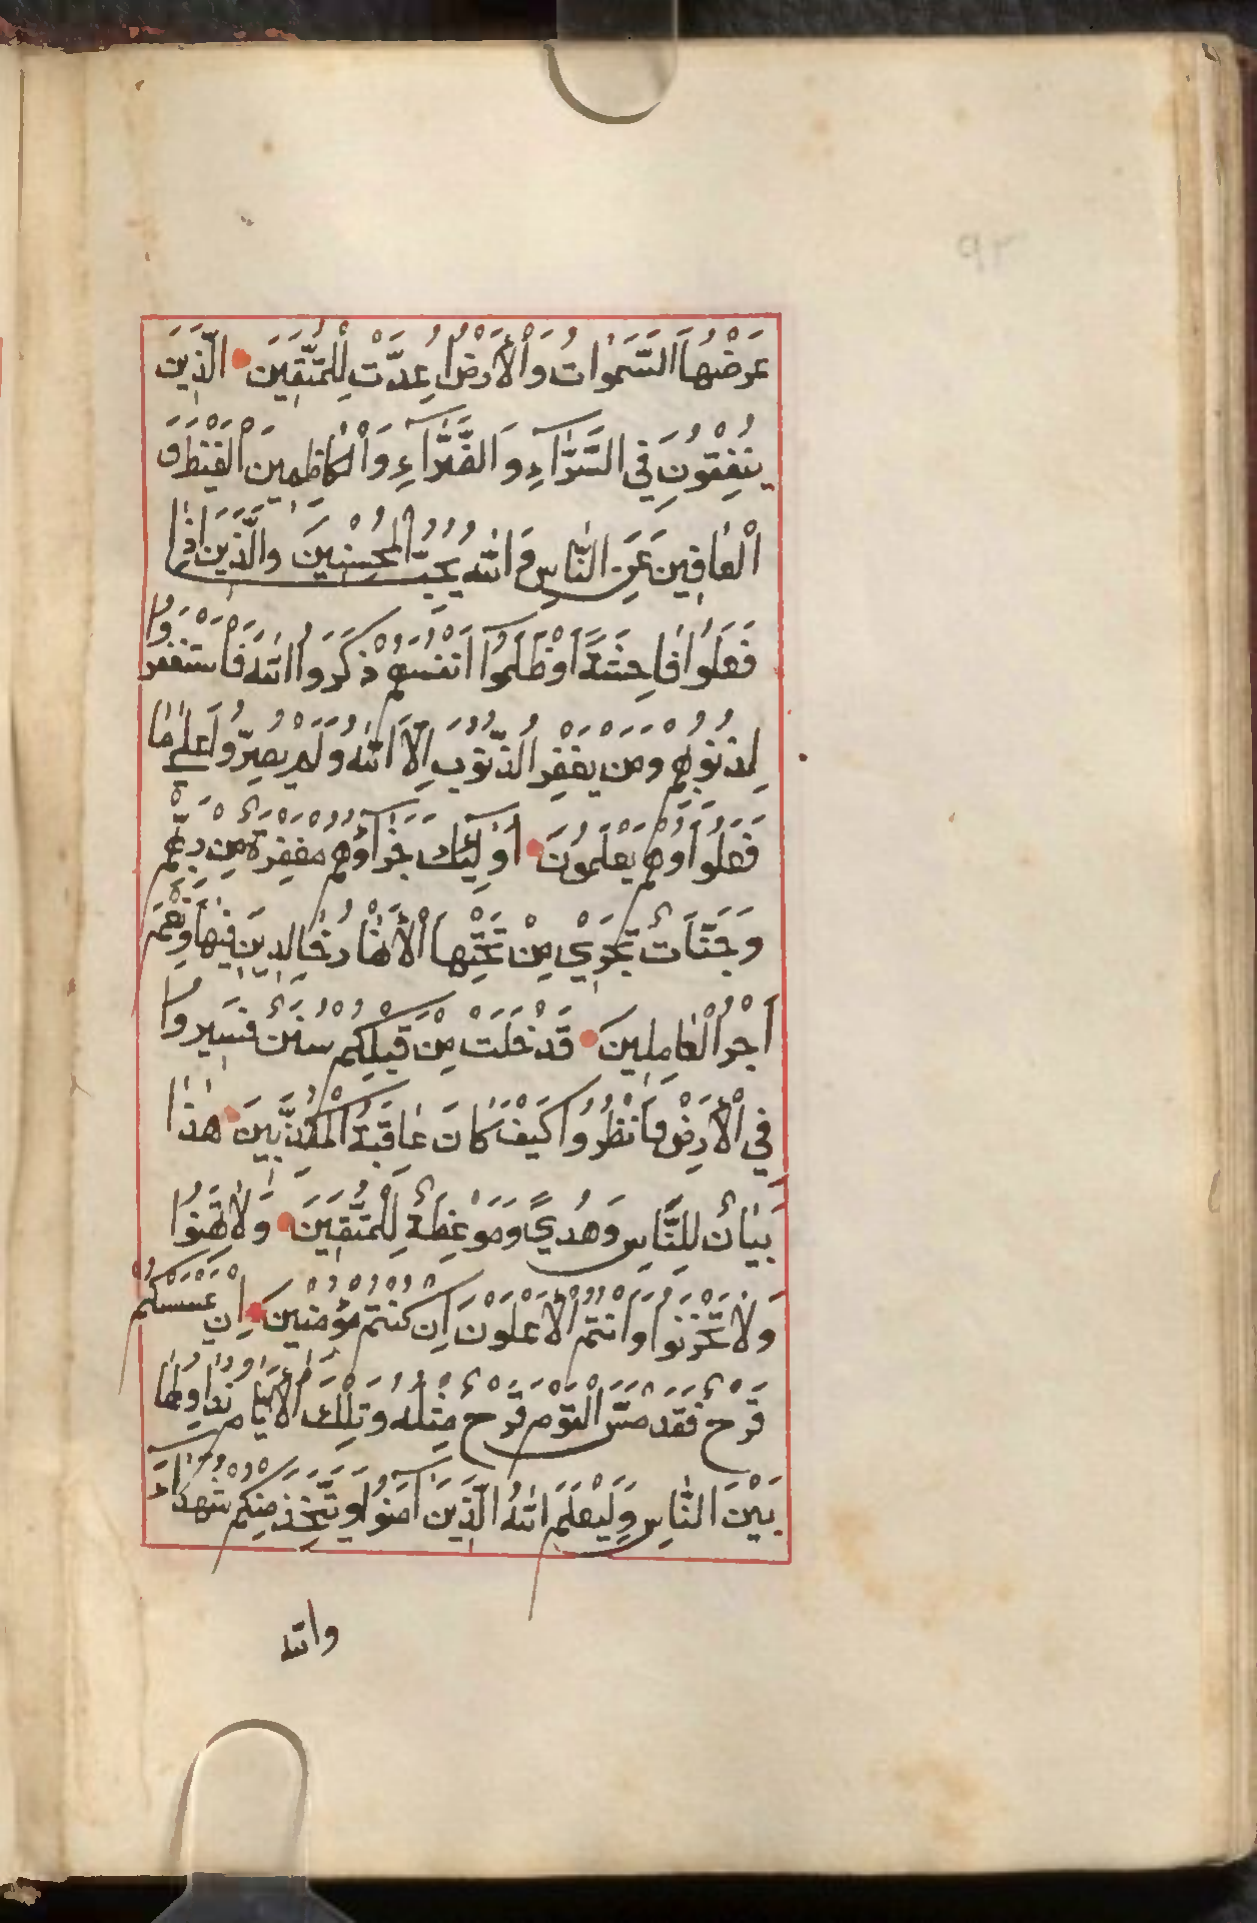 ٩٢
عَرْضُهَا السَّمَوَاتُ وَالْأَرْضُ اُعِدَّتْ لِلْمُتَّقِينَ الَّذِينَ
يُنْفِقُونَ فِي السَّرَّآءِ وَالضَّرَّآءِ وَالْكَاظِمِينَ الْغَيْظَ وَ
الْعَافِينَ عَنِ النَّاسِ وَاللهُ يُحِبُّ الْمُحْسِنِينَ وَالَّذِينَ اِذَا
فَعَلُوا فَاحِشَةً اَوْ ظَلَمُوآ اَنْفُسَهُمْ ذَكَرُوا اللهَ فَاسْتَغْفَرُوا
لِذُنُوبِهِمْ وَمَنْ يَغْفِرُ الذُّنُوبَ اِلَّا اللهُ وَلَمْ يُصِرُّوا عَلَى مَا
فَعَلُوا وَهُمْ يَعْلَمُونَ اُولَئِكَ جَزَآؤُهُمْ مَغْفِرَةٌ مِنْ رَبِّهِمْ
وَجَنَّاتٌ تَجْرِي مِنْ تَحْتِهَا الْأَنْهَارُ خَالِدِينَ فِيهَا وَنِعْمَ
اَجْرُ الْعَامِلِينَ قَدْ خَلَتْ مِنْ قَبْلِكُمْ سُنَنٌ فَسِيرُوا
فِي الْأَرْضِ فَانْظُرُوا كَيْفَ كَانَ عَاقِبَةُ الْمُكَذِّبِينَ هَذَا
بَيَانٌ لِلنَّاسِ وَهُدًي وَمَوْعِظَةٌ لِلْمُتَّقِينَ وَلَا تَهِنُوا
وَلَا تَحْزَنُوا وَاَنْتُمُ الْأَعْلَوْنَ اِنْ كُنْتُمْ مُؤْمِنِينَ اِنْ يَمْسَسْكُمْ
قَرْحٌ فَقَدْ مَسَّ الْقَوْمَ قَرْحٌ مِثْلُهُ وَتِلْكَ الْأَيَّامُ نُدَاوِلُهَا
بَيْنَ النَّاسِ وَلِيَعْلَمَ اللهُ الَّذِينَ آمَنُوا وَيَتَّخِذَ مِنْكُمْ شُهَدَآءَ
والله